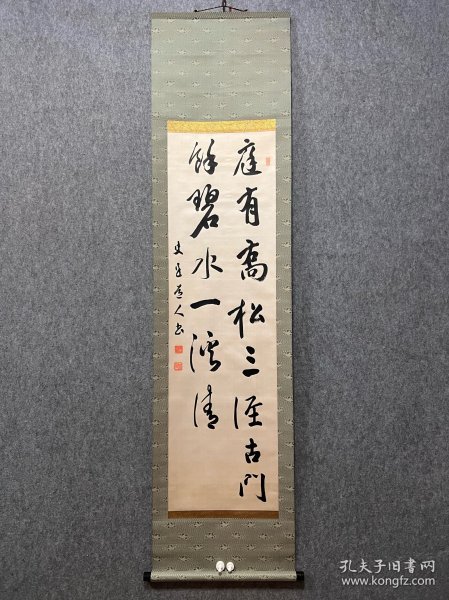 庭有喬松三逕古門
餘碧水一溪清
道人書
孔夫子旧书网
www.kongfz.com